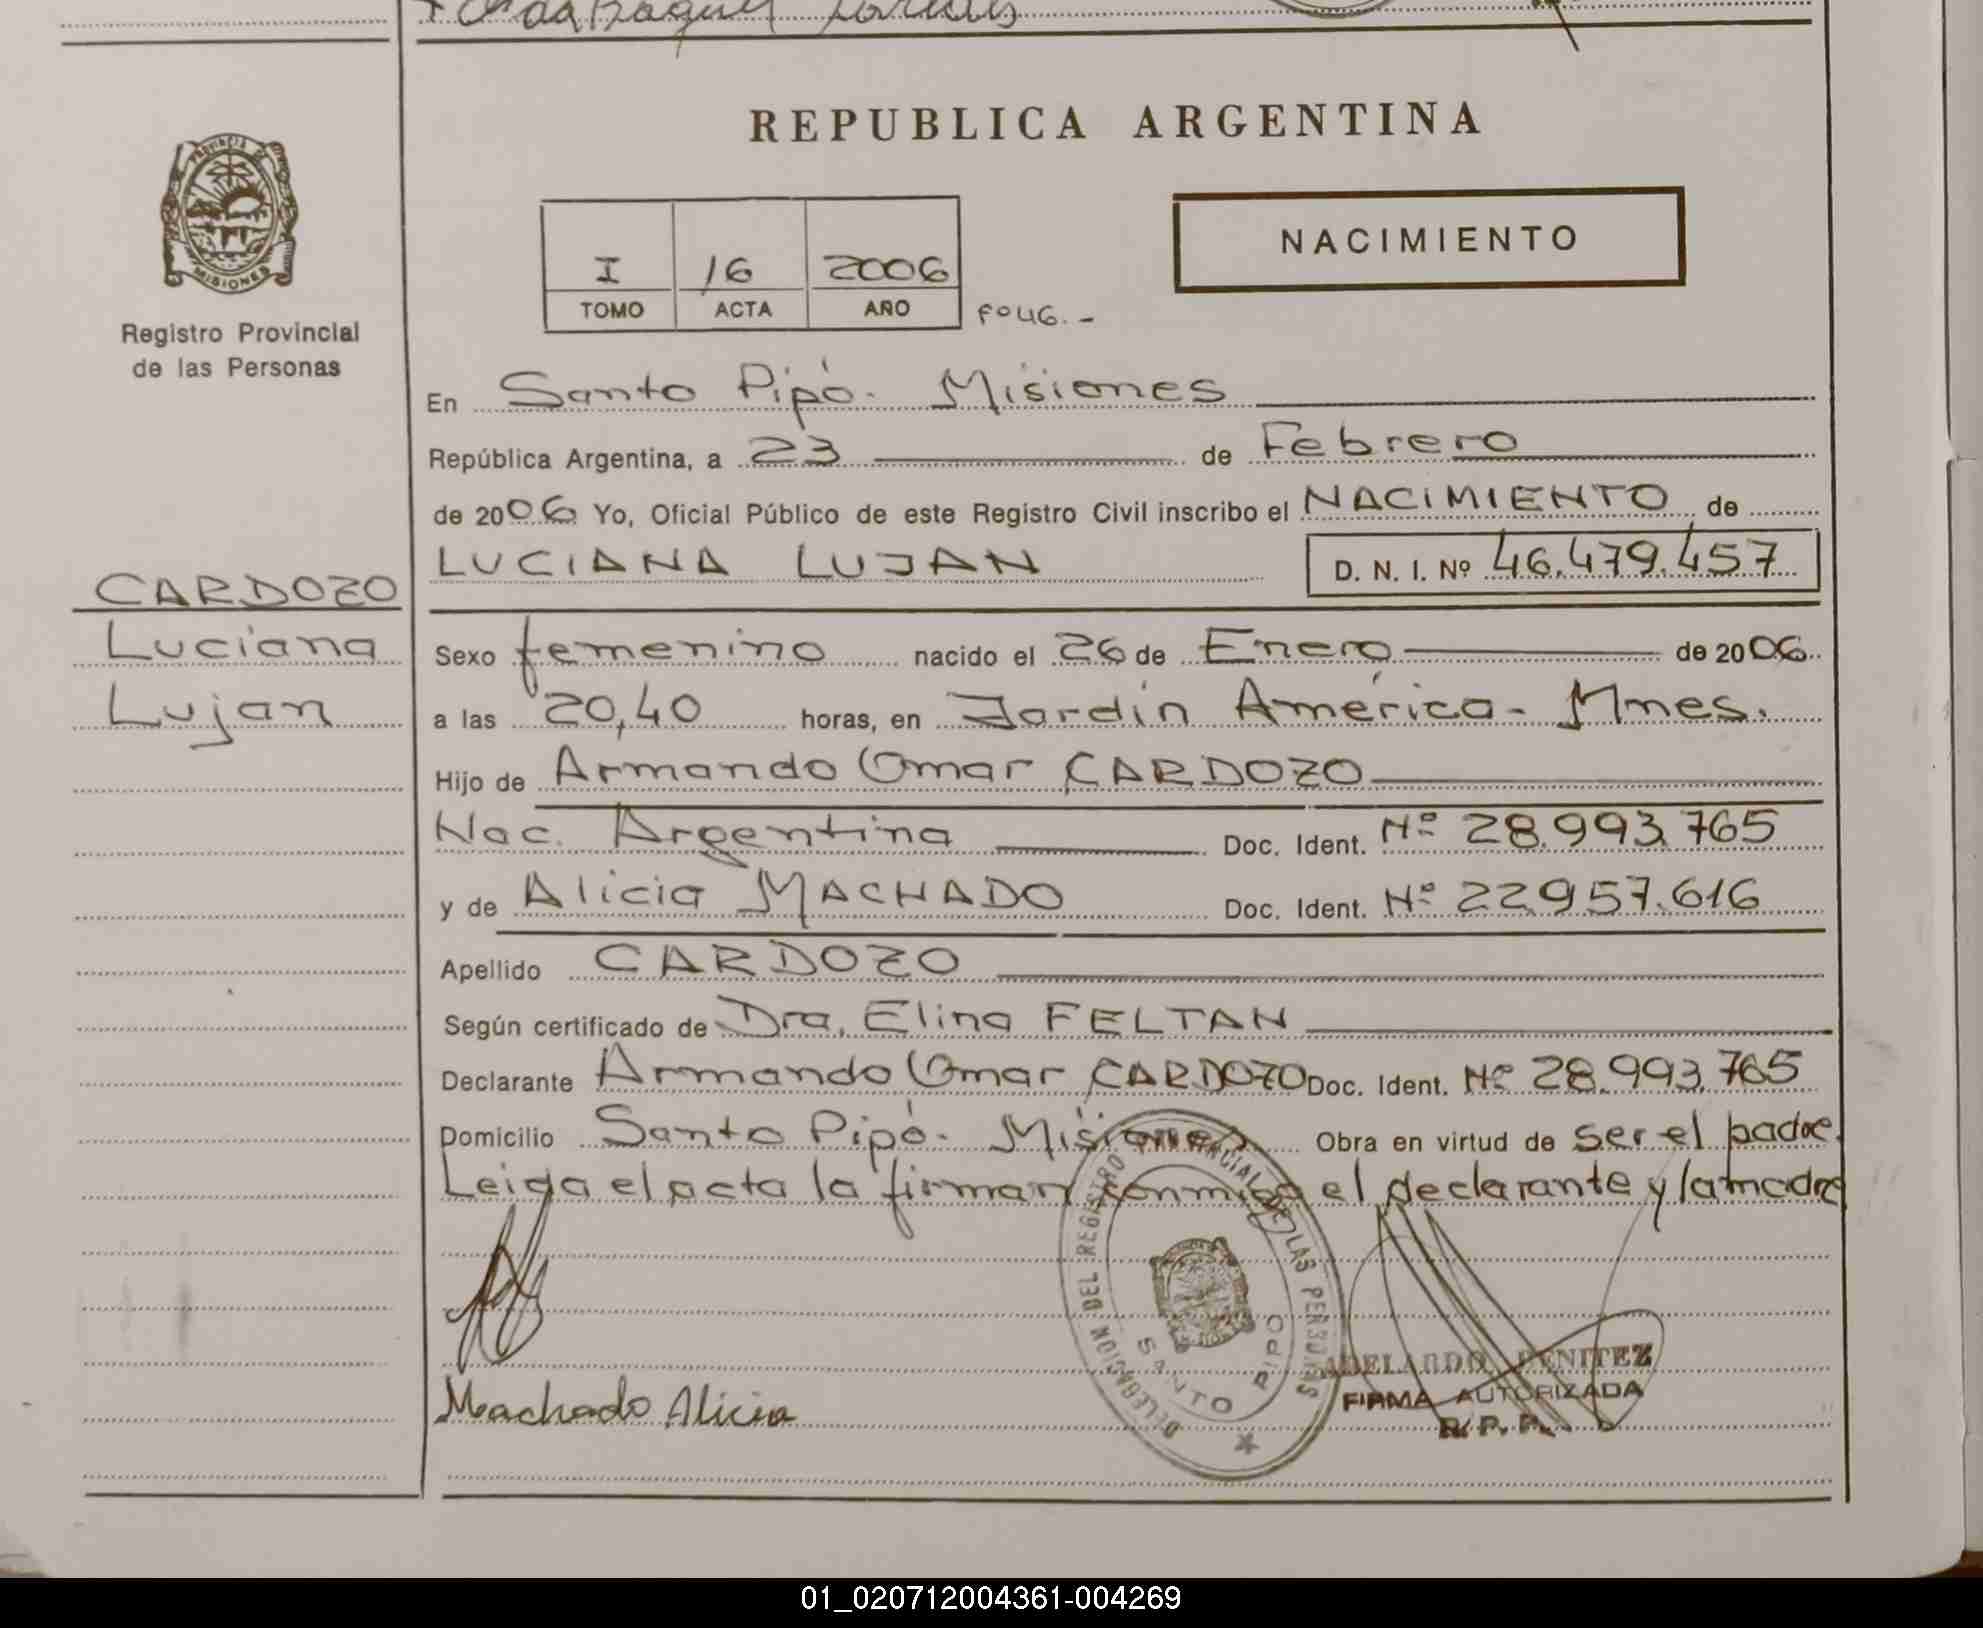 REPUBLICA ARGENTINA
PROVINCIA DE
MISIONES
Registro Provincial
de las Personas
NACIMIENTO
I 16 2006
TOMO ACTA AÑO
Fº 46.-
En Santo Pipó. Misiones
República Argentina, a 23 de Febrero
de 2006 Yo, Oficial Público de este Registro Civil inscribo el NACIMIENTO de
LUCIANA LUJAN D. N. I. Nº 46.479.457
CARDOZO
Luciana
Lujan
Sexo femenino nacido el 26 de Enero de 2006
a las 20,40 horas, en Jardín América - Mnes.
Hijo de Armando Omar CARDOZO
Nac. Argentina Doc. Ident. Nº 28.993.765
y de Alicia MACHADO Doc. Ident. Nº 22957.616
Apellido CARDOZO
Según certificado de Dra. Elina FELTAN
Declarante Armando Omar CARDOZO Doc. Ident. Nº 28.993.765
Domicilio Santo Pipó. Misiones Obra en virtud de ser el padre.
Leida el acta la firman conmigo el declarante y la madre
DELEGACION DEL REGISTRO PROVINCIAL DE LAS PERSONAS
SANTO PIPO
ADELARDO BENITEZ
FIRMA AUTORIZADA
R. P. P.
Machado Alicia
01_020712004361-004269